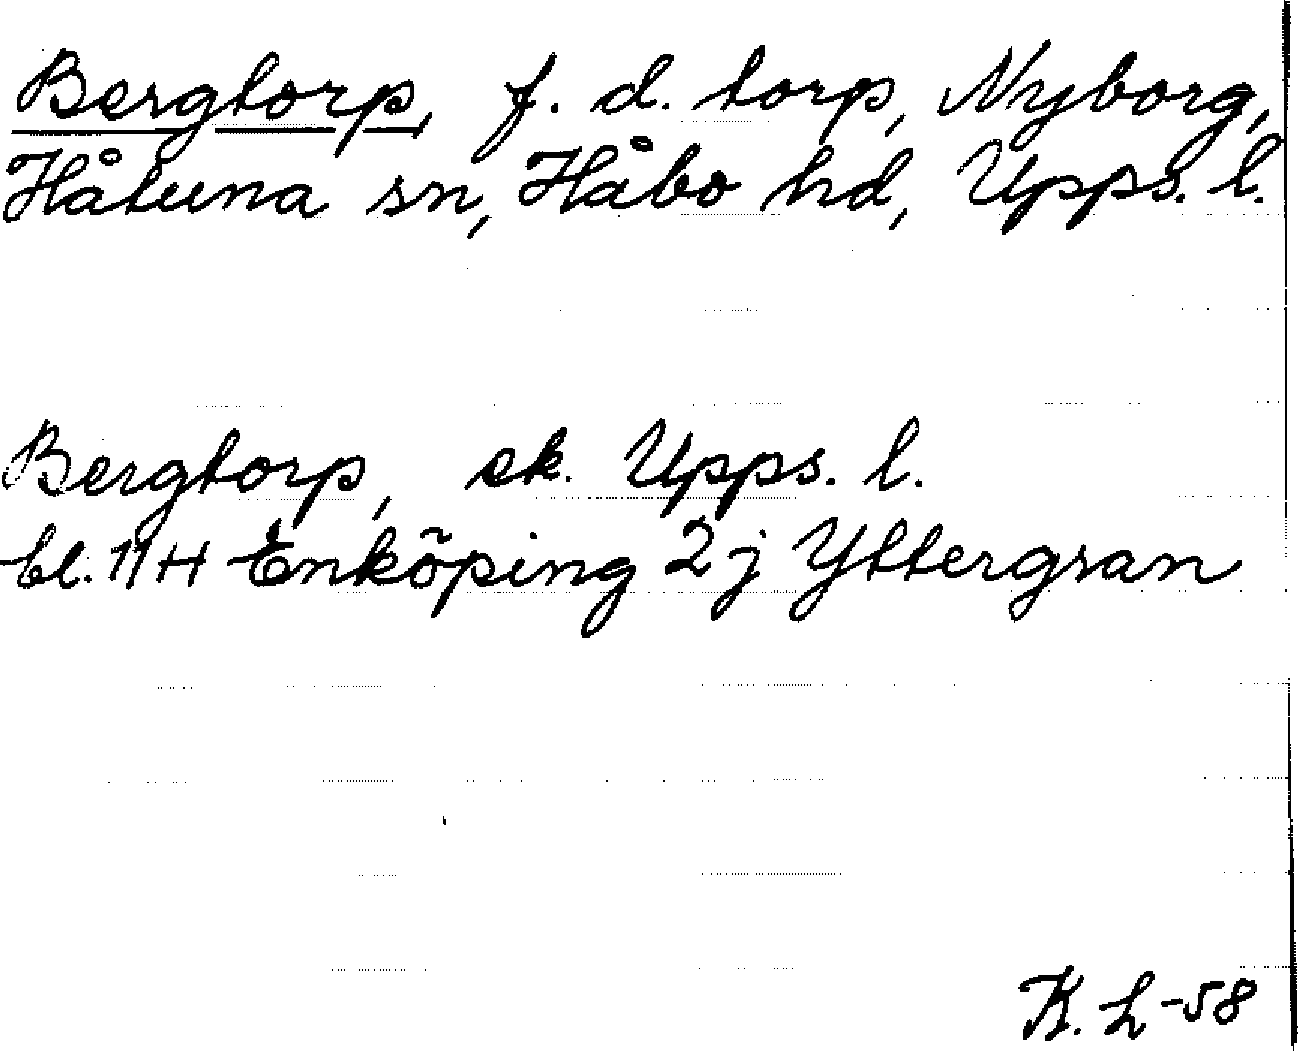 Bergtorp, f. d. torp, Nyborg,
Håtuna sn, Håbo hd, Upps. l.
Bergtorp, ek. Upps. l.
bl. 11H Enköping 2j Yttergran
K. L -58